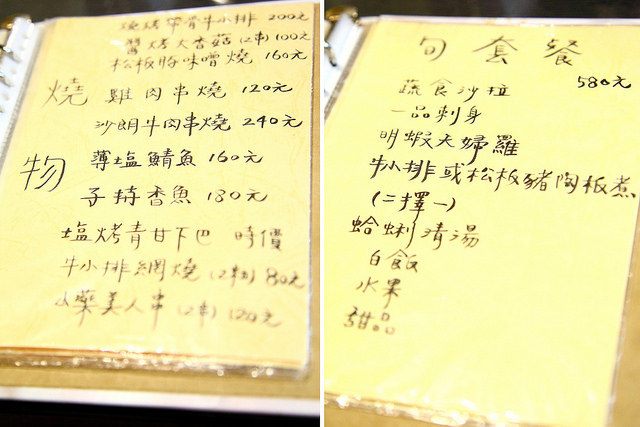 燒烤帶骨牛小排 200元
醬烤大香菇 (2串) 100元
松板豚味噌燒 160元
燒物
雞肉串燒 120元
沙朗牛肉串燒 240元
薄塩鯖魚 160元
子持香魚 180元
塩烤青甘下巴 時價
牛小排網燒 (2串) 80元
山藥美人串 (2串) 120元
旬套餐
580元
蔬食沙拉
一品刺身
明蝦天婦羅
牛小排或松板豬陶板煮
(二擇一)
蛤蜊清湯
白飯
水果
甜品